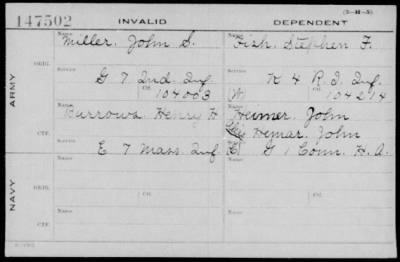 (3-H-5)
147502 INVALID DEPENDENT
ARMY
ORIG.
Name Miller, John S. Name Fish, Stephen F.
Service G 7 Ind. Inf. Service K 4 R.I. Inf.
Ctf. 104003 (W) Ctf. 104214
CTF.
Name Burrows, Henry H Name Heimer, John
Hemar, John
Service E 7 Mass. Inf. G 1 Conn. H. A.
NAVY
ORIG.
Name Name
Service Service
Ctf. Ctf.
CTF.
Name Name
Service Service